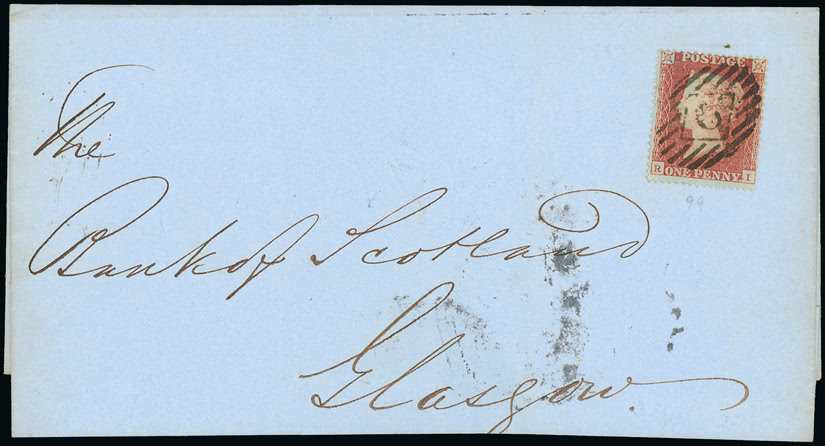 POSTAGE
R ONE PENNY I
99
The
Bank of Scotland
Glasgow.